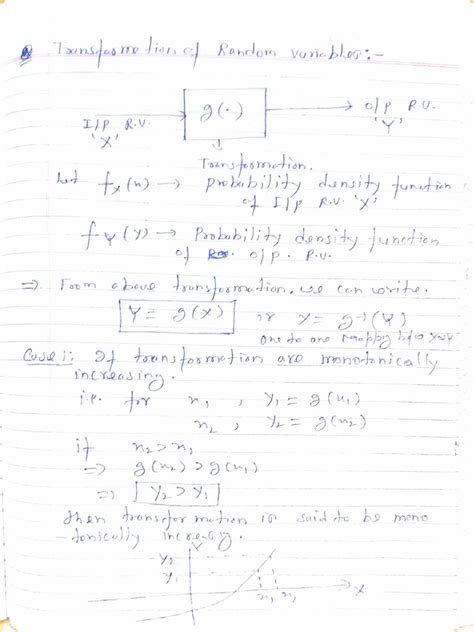 Transformation of Random variables:-
I/p R.V. 'X'
g(·)
o/p R.U. 'Y'
Transformation.
Let fx(x) → probability density function
of I/p R.U. 'X'
fY(Y) → Probability density function
of o/p. R.U.
⇒ From above transformation, we can write.
Y = g(X) or X = g-1(Y)
one to one mapping b/w X & Y
Case 1: If transformation are monotonically
increasing.
i.e. for x1, Y1 = g(x1)
x2, Y2 = g(x2)
if x2 > x1
⇒ g(x2) > g(x1)
⇒ Y2 > Y1
then transformation is said to be mono
-tonically increasing.
Y
Y2
Y1
x1 x2 X